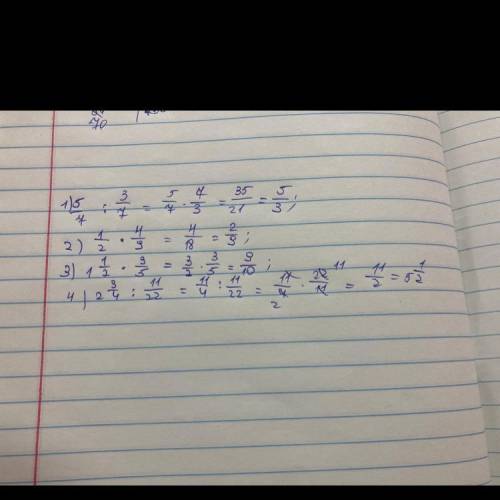 1) 5/7 : 3/7 = 5/7 · 7/3 = 35/21 = 5/3;
2) 1/2 · 4/9 = 4/18 = 2/9;
3) 1 1/2 · 3/5 = 3/2 · 3/5 = 9/10;
4) 2 3/4 : 11/22 = 11/4 : 11/22 = 11/4 2 · 22/11 11 = 11/2 = 5 1/2